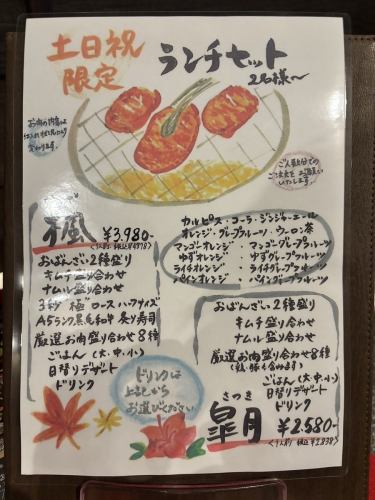 土日祝
限定
ランチセット
2名様〜
お肉の内容は
仕入れ状況により
変わります。
ご人数分での
ご注文をお願い
いたします。
楓
¥3,980-
<1人前 税込¥4,378>
おばんざい2種盛り
キムチ盛り合わせ
ナムル盛り合わせ
3秒 極 ロース ハーフサイズ
A5ランク黒毛和牛 炙り寿司
厳選お肉盛り合わせ8種
ごはん (大・中・小)
日替りデザート
ドリンク
カルピス・コーラ・ジンジャーエール
オレンジ・グレープフルーツ・ウーロン茶
マンゴーオレンジ・マンゴーグレープフルーツ
ゆずオレンジ・ゆずグレープフルーツ
ライチオレンジ・ライチグレープフルーツ
パインオレンジ・パイングレープフルーツ
おばんざい2種盛り
キムチ盛り合わせ
ナムル盛り合わせ
厳選お肉盛り合わせ8種
ごはん (大・中・小)
日替りデザート
ドリンク
さつき
皐月
¥2,580-
<1人前 税込¥2,838>
ドリンクは
上記から
お選びください